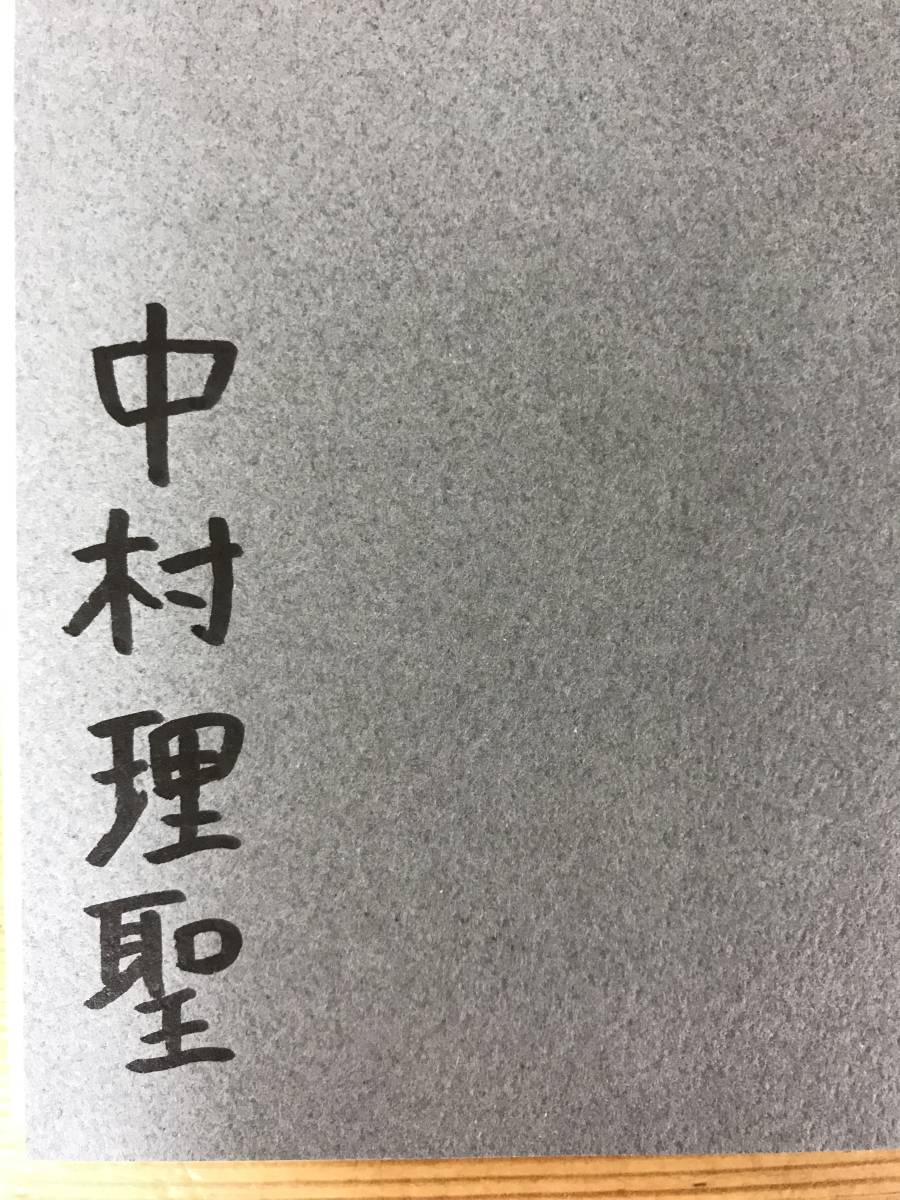 中村理聖